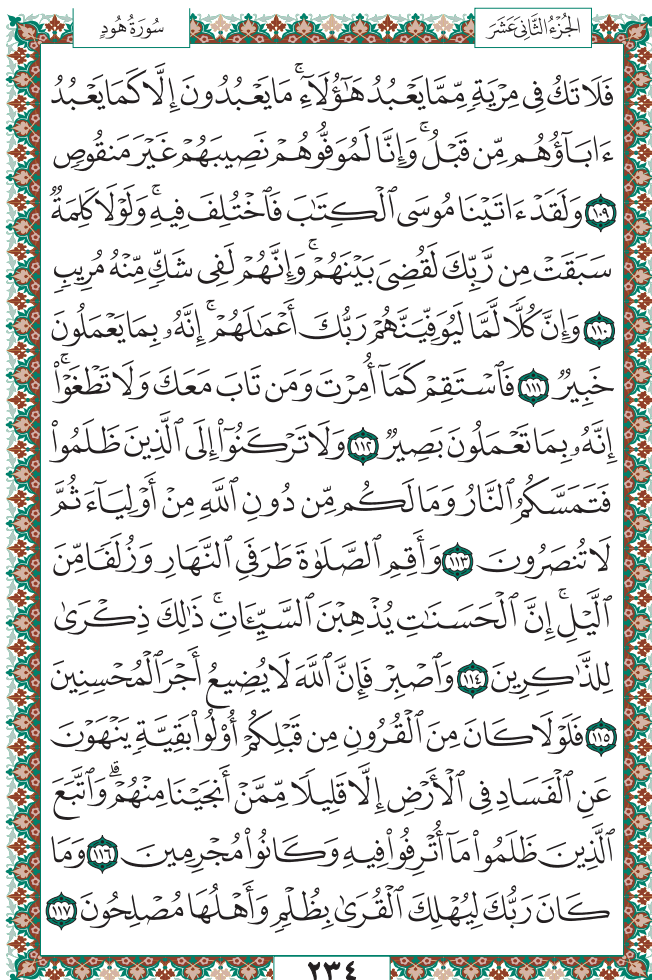 الجُزْءُ الثَّانِيَ عَشَرَ
سُورَةُ هُودٍ
فَلَا تَكُ فِى مِرْيَةٍ مِّمَّا يَعْبُدُ هَٰٓؤُلَآءِ ۚ مَا يَعْبُدُونَ إِلَّا كَمَا يَعْبُدُ
ءَابَآؤُهُم مِّن قَبْلُ ۚ وَإِنَّا لَمُوَفُّوهُمْ نَصِيبَهُمْ غَيْرَ مَنقُوصٍ
١٠٩ وَلَقَدْ ءَاتَيْنَا مُوسَى ٱلْكِتَٰبَ فَٱخْتُلِفَ فِيهِ ۚ وَلَوْلَا كَلِمَةٌ
سَبَقَتْ مِن رَّبِّكَ لَقُضِىَ بَيْنَهُمْ ۚ وَإِنَّهُمْ لَفِى شَكٍّ مِّنْهُ مُرِيبٍ
١١٠ وَإِنَّ كُلًّا لَّمَّا لَيُوَفِّيَنَّهُمْ رَبُّكَ أَعْمَٰلَهُمْ ۚ إِنَّهُۥ بِمَا يَعْمَلُونَ
خَبِيرٌ ١١١ فَٱسْتَقِمْ كَمَآ أُمِرْتَ وَمَن تَابَ مَعَكَ وَلَا تَطْغَوْا۟ ۚ
إِنَّهُۥ بِمَا تَعْمَلُونَ بَصِيرٌ ١١٢ وَلَا تَرْكَنُوٓا۟ إِلَى ٱلَّذِينَ ظَلَمُوا۟
فَتَمَسَّكُمُ ٱلنَّارُ وَمَا لَكُم مِّن دُونِ ٱللَّهِ مِنْ أَوْلِيَآءَ ثُمَّ
لَا تُنصَرُونَ ١١٣ وَأَقِمِ ٱلصَّلَوٰةَ طَرَفَىِ ٱلنَّهَارِ وَزُلَفًا مِّنَ
ٱلَّيْلِ ۚ إِنَّ ٱلْحَسَنَٰتِ يُذْهِبْنَ ٱلسَّيِّـَٔاتِ ۚ ذَٰلِكَ ذِكْرَىٰ
لِلذَّٰكِرِينَ ١١٤ وَٱصْبِرْ فَإِنَّ ٱللَّهَ لَا يُضِيعُ أَجْرَ ٱلْمُحْسِنِينَ
١١٥ فَلَوْلَا كَانَ مِنَ ٱلْقُرُونِ مِن قَبْلِكُمْ أُو۟لُوا۟ بَقِيَّةٍ يَنْهَوْنَ
عَنِ ٱلْفَسَادِ فِى ٱلْأَرْضِ إِلَّا قَلِيلًا مِّمَّنْ أَنجَيْنَا مِنْهُمْ ۗ وَٱتَّبَعَ
ٱلَّذِينَ ظَلَمُوا۟ مَآ أُتْرِفُوا۟ فِيهِ وَكَانُوا۟ مُجْرِمِينَ ١١٦ وَمَا
كَانَ رَبُّكَ لِيُهْلِكَ ٱلْقُرَىٰ بِظُلْمٍ وَأَهْلُهَا مُصْلِحُونَ ١١٧
٢٣٤